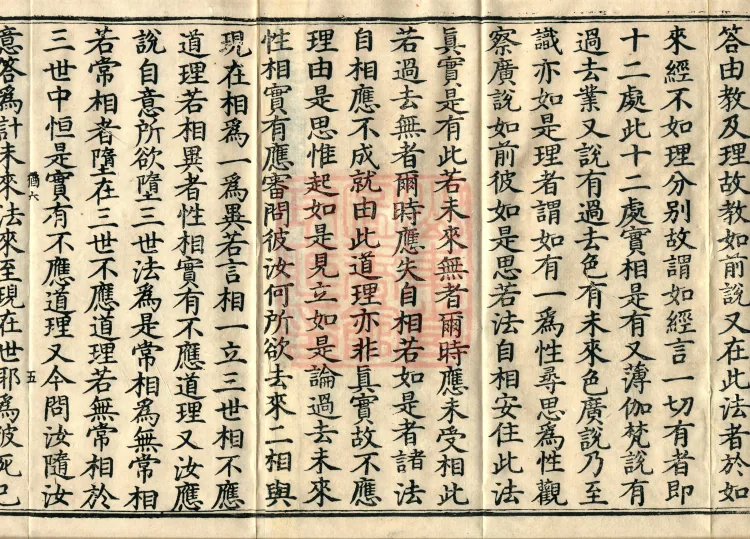 答由教及理故教如前說又在此法者於如
來經不如理分别故謂如經言一切有者即
十二處此十二處實相是有又薄伽梵說有
過去業又說有過去色有未來色廣說乃至
識亦如是理者謂如有一爲性尋思爲性觀
察廣說如前彼如是思若法自相安住此法
眞實是有此若未來無者爾時應未受相此
若過去無者爾時應失自相若如是者諸法
自相應不成就由此道理亦非眞實故不應
理由是思惟起如是見立如是論過去未來
性相實有應審問彼汝何所欲去來二相與
現在相爲一爲異若言相一立三世相不應
道理若相異者性相實有不應道理又汝應
說自意所欲墮三世法爲是常相爲無常相
若常相者墮在三世不應道理若無常相於
三世中恒是實有不應道理又今問汝隨汝
五
意答爲計未來法來至現在世耶爲彼死已